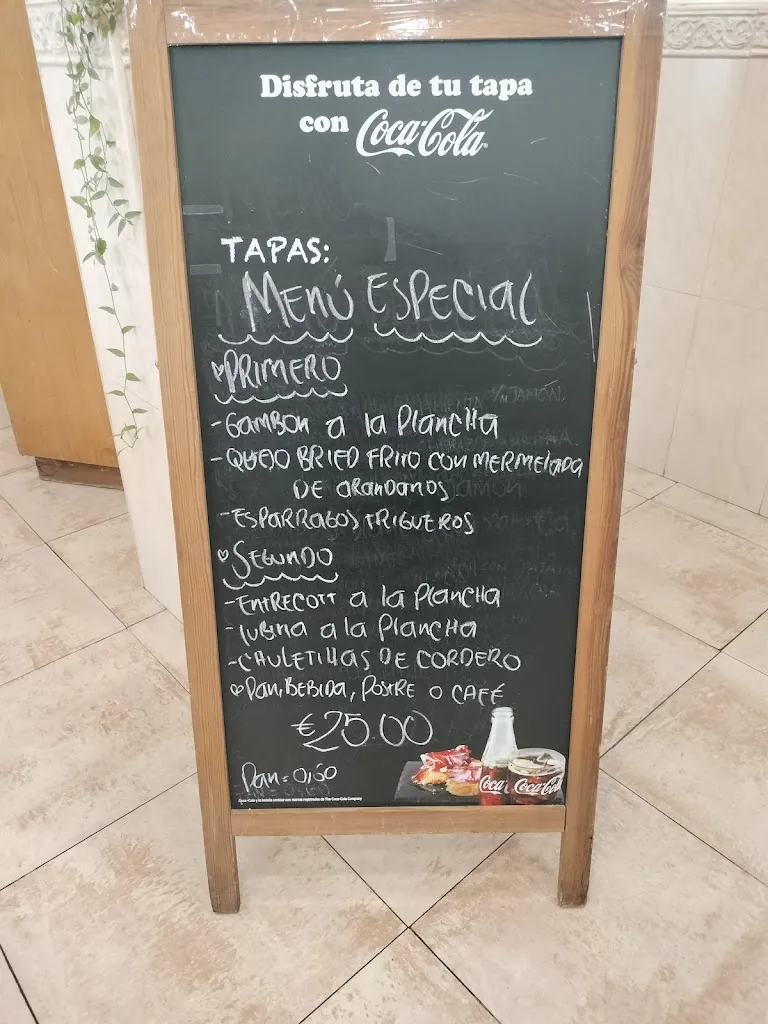 Disfruta de tu tapa
con Coca-Cola
TAPAS:
MENÚ ESPECIAL
PRIMERO
- GAMBON a la PlanCHa
- QUESO BRIED FRITO CON MERMELADA
DE ARANDANOS
- ESPARRAGOS TRIGUEROS
SEGUNDO
- ENTRECOTT a la PlanCHa
- LUBINA a la PlanCHa
- CHULETILLAS DE CORDERO
PAN, BEBIDA, POSTRE O CAFÉ
€25.00
Pan = 0,60
Coca-Cola
Coca-Cola y la botella contour son marcas registradas de The Coca-Cola Company